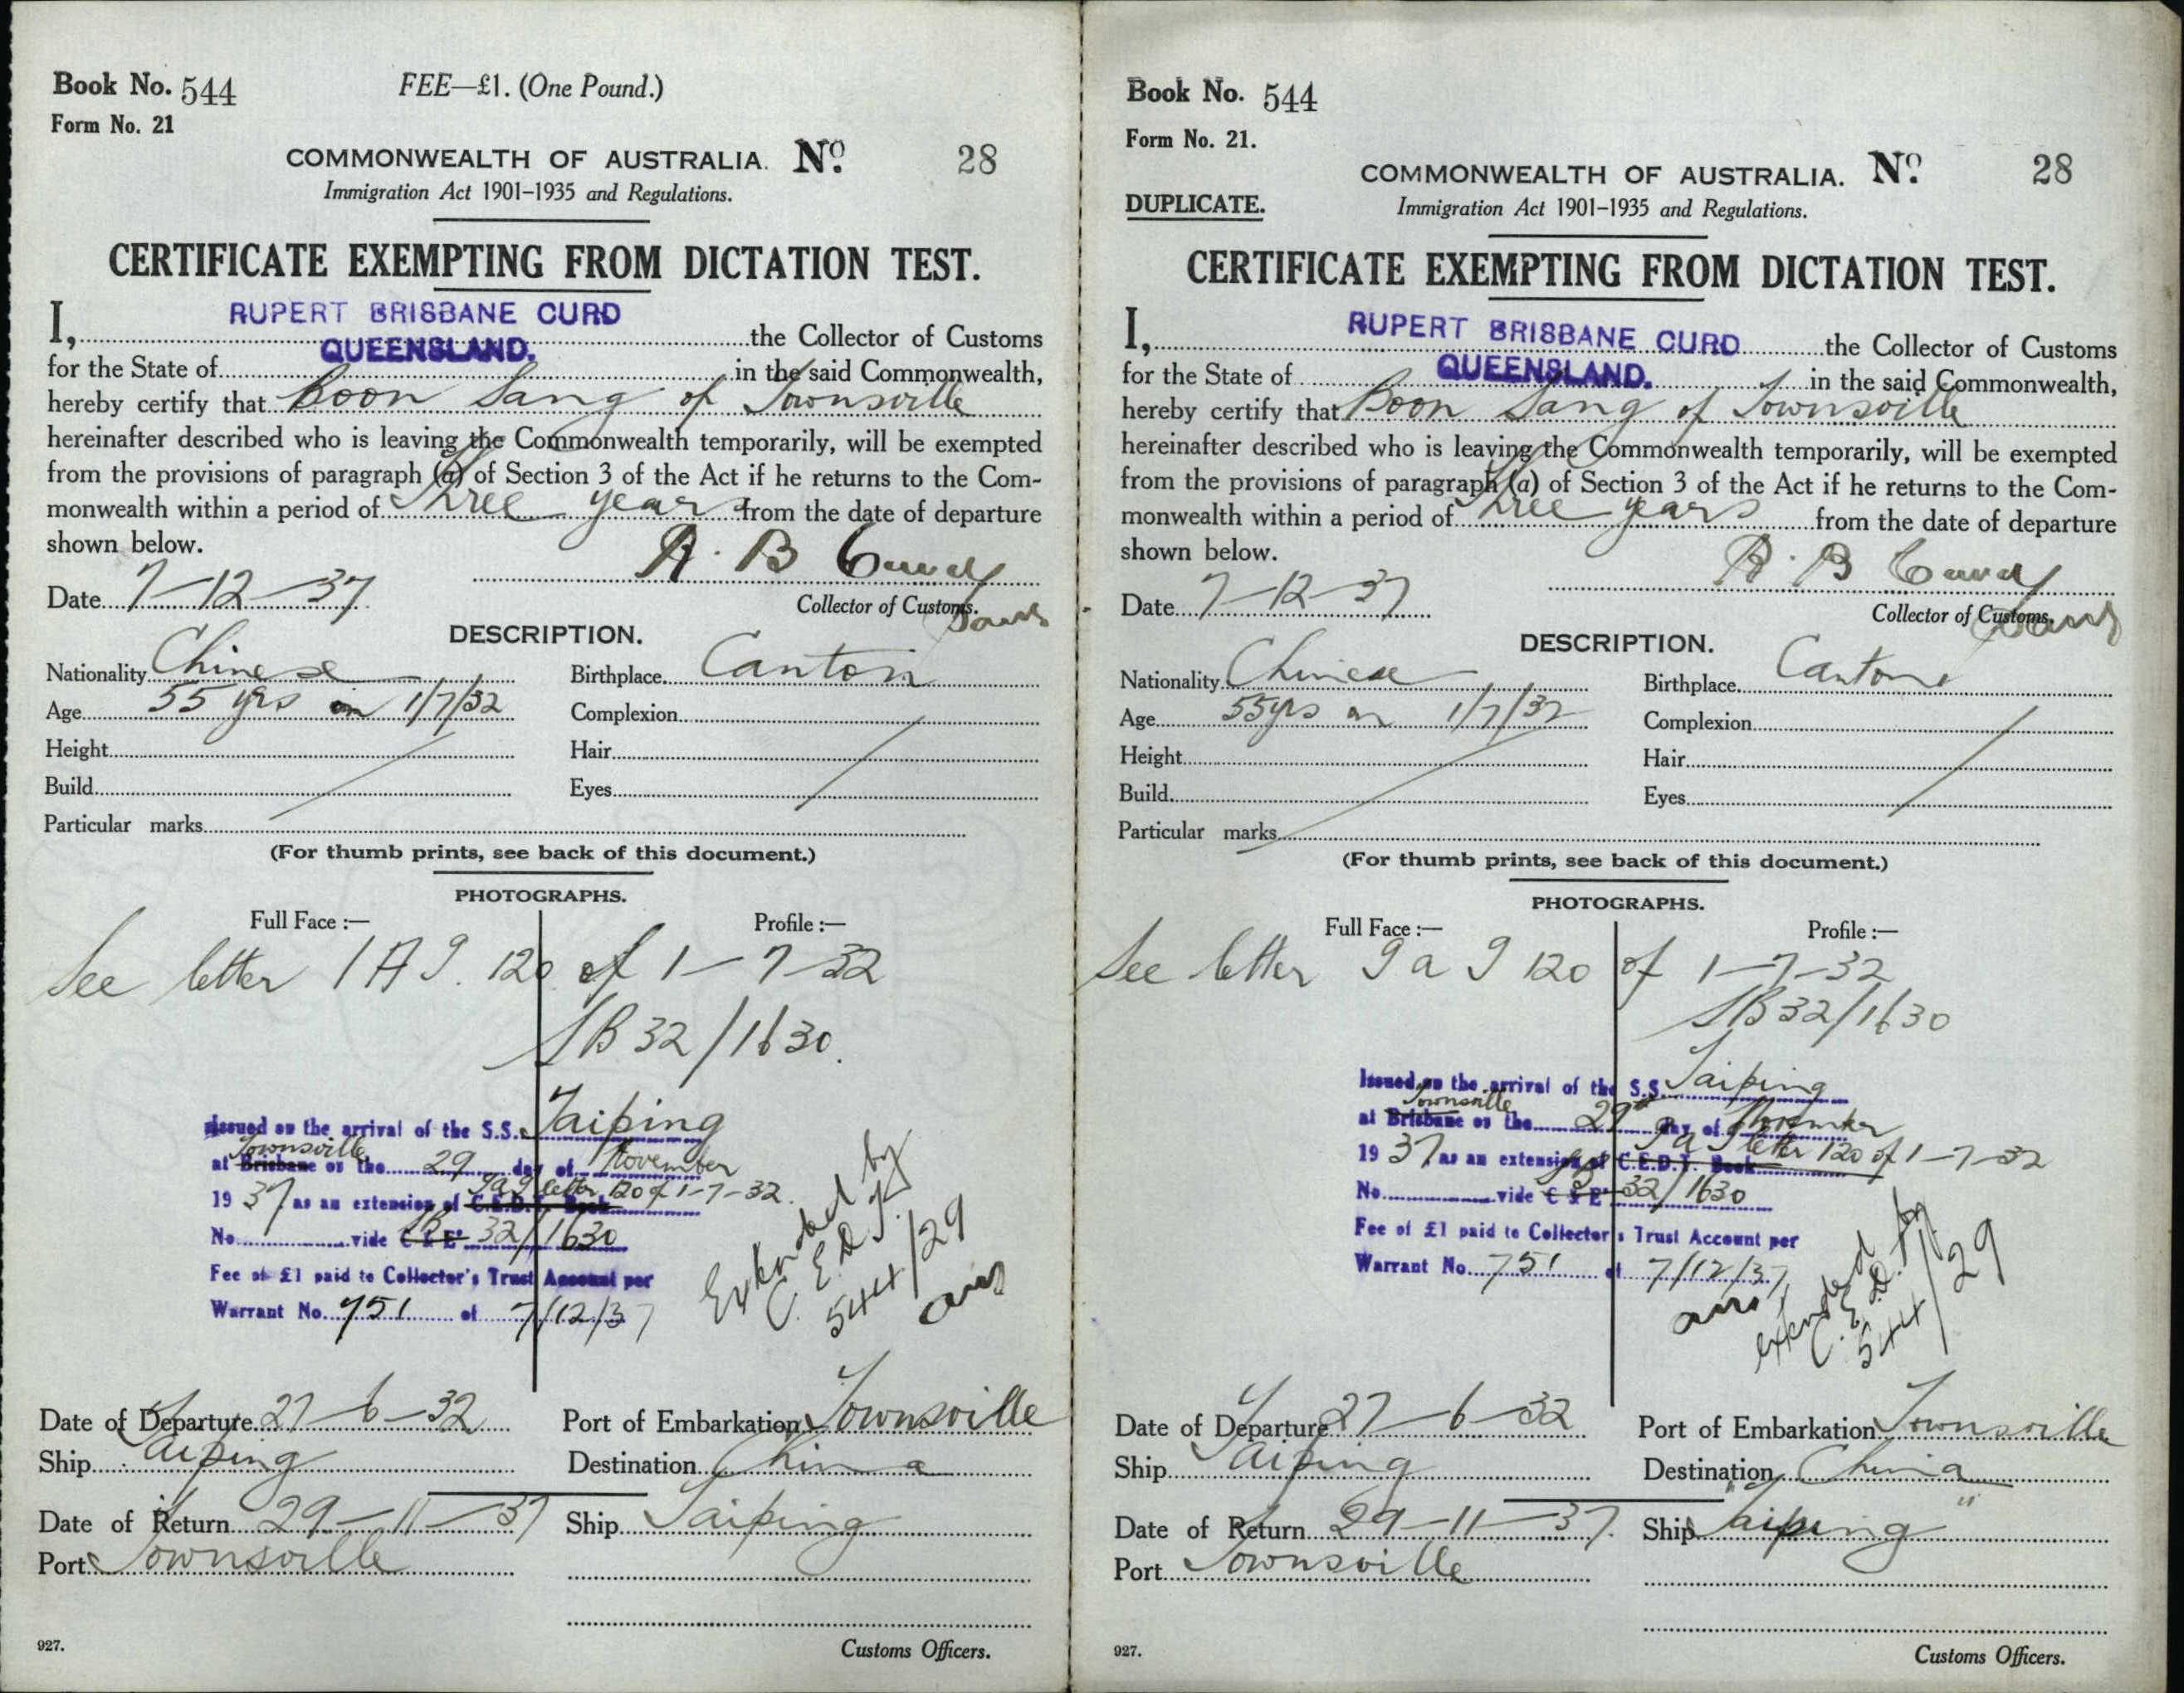 Book No. 544
FEE—£1. (One Pound.)
Form No. 21
COMMONWEALTH OF AUSTRALIA. No. 28
Immigration Act 1901–1935 and Regulations.
CERTIFICATE EXEMPTING FROM DICTATION TEST.
I, RUPERT BRISBANE CURD the Collector of Customs
for the State of QUEENSLAND. in the said Commonwealth,
hereby certify that Boon Sang of Townsville
hereinafter described who is leaving the Commonwealth temporarily, will be exempted
from the provisions of paragraph (a) of Section 3 of the Act if he returns to the Com-
monwealth within a period of Three years from the date of departure
shown below.
R. B Curd
Date 7–12–37
Collector of Customs.
DESCRIPTION.
Nationality Chinese Birthplace Canton
Age 55 yrs on 1/7/32 Complexion
Height Hair
Build Eyes
Particular marks
(For thumb prints, see back of this document.)
PHOTOGRAPHS.
Full Face :— Profile :—
See letter 120 of 1–7–32
32/1630.
Issued on the arrival of the S.S. Taiping
Townsville
at Brisbane on the 29 day of November
letter 120 of 1–7–32.
19 37 as an extension of C.E.D.T. Book
No. vide C & E' 32/1630
Fee of £1 paid to Collector's Trust Account per
Warrant No. 751 of 7/12/37
Extended by
C.E.D.T.
544/29
Date of Departure 27–6–32 Port of Embarkation Townsville
Ship Taiping Destination China
Date of Return 29–11–37 Ship Taiping
Port Townsville
927.
Customs Officers.
Book No. 544
Form No. 21.
COMMONWEALTH OF AUSTRALIA. No. 28
DUPLICATE.
Immigration Act 1901–1935 and Regulations.
CERTIFICATE EXEMPTING FROM DICTATION TEST.
I, RUPERT BRISBANE CURD the Collector of Customs
for the State of QUEENSLAND. in the said Commonwealth,
hereby certify that Boon Sang of Townsville
hereinafter described who is leaving the Commonwealth temporarily, will be exempted
from the provisions of paragraph (a) of Section 3 of the Act if he returns to the Com-
monwealth within a period of Three years from the date of departure
shown below.
R. B Curd
Date 7–12–37
Collector of Customs.
DESCRIPTION.
Nationality Chinese Birthplace Canton
Age 55 yrs on 1/7/32 Complexion
Height Hair
Build Eyes
Particular marks
(For thumb prints, see back of this document.)
PHOTOGRAPHS.
Full Face :— Profile :—
See letter 120 of 1–7–32
32/1630
Issued on the arrival of the S.S. Taiping
Townsville
at Brisbane on the 29th day of November
letter 120 of 1–7–32
19 37 as an extension of C.E.D.T. Book
No. vide C & E' 32/1630
Fee of £1 paid to Collector's Trust Account per
Warrant No. 751 of 7/12/37
extended by
C.E.D.T.
544/29
Date of Departure 27–6–32 Port of Embarkation Townsville
Ship Taiping Destination China
Date of Return 29–11–37. Ship "Taiping"
Port Townsville
927.
Customs Officers.